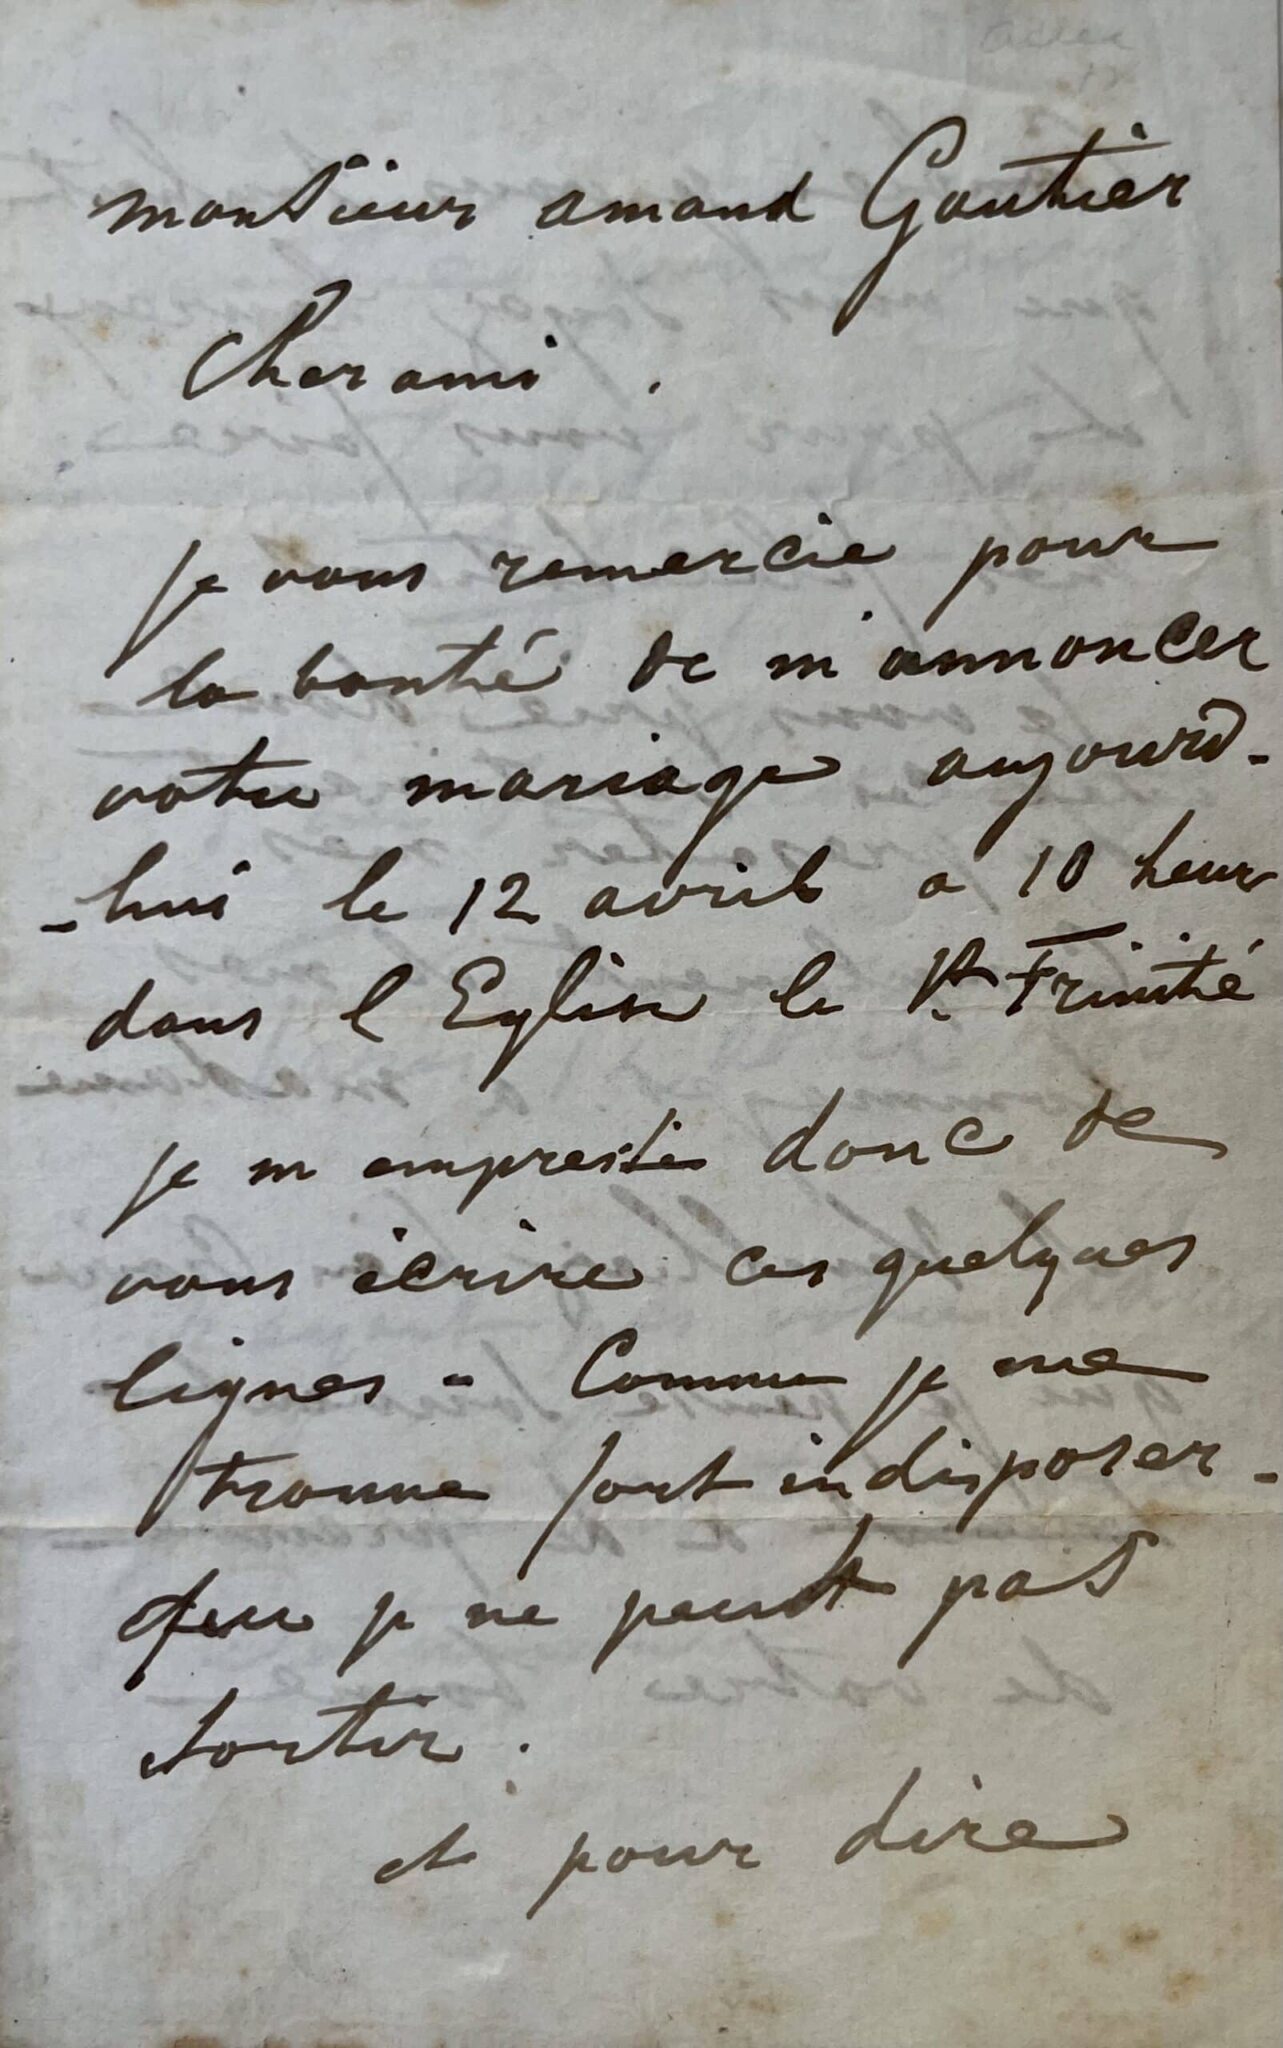 monsieur amand Gautier
Cher ami .
je vous remercie pour
la bonté de m annoncer
votre mariage aujourd-
-hui le 12 avril a 10 heur
dans l Eglise la St. Trinité
je m empresse donc de
vous ècrire ces quelques
lignes - Comme je me
trouve fort indisposer -
que je ne peut pas
sortir .
et pour dire